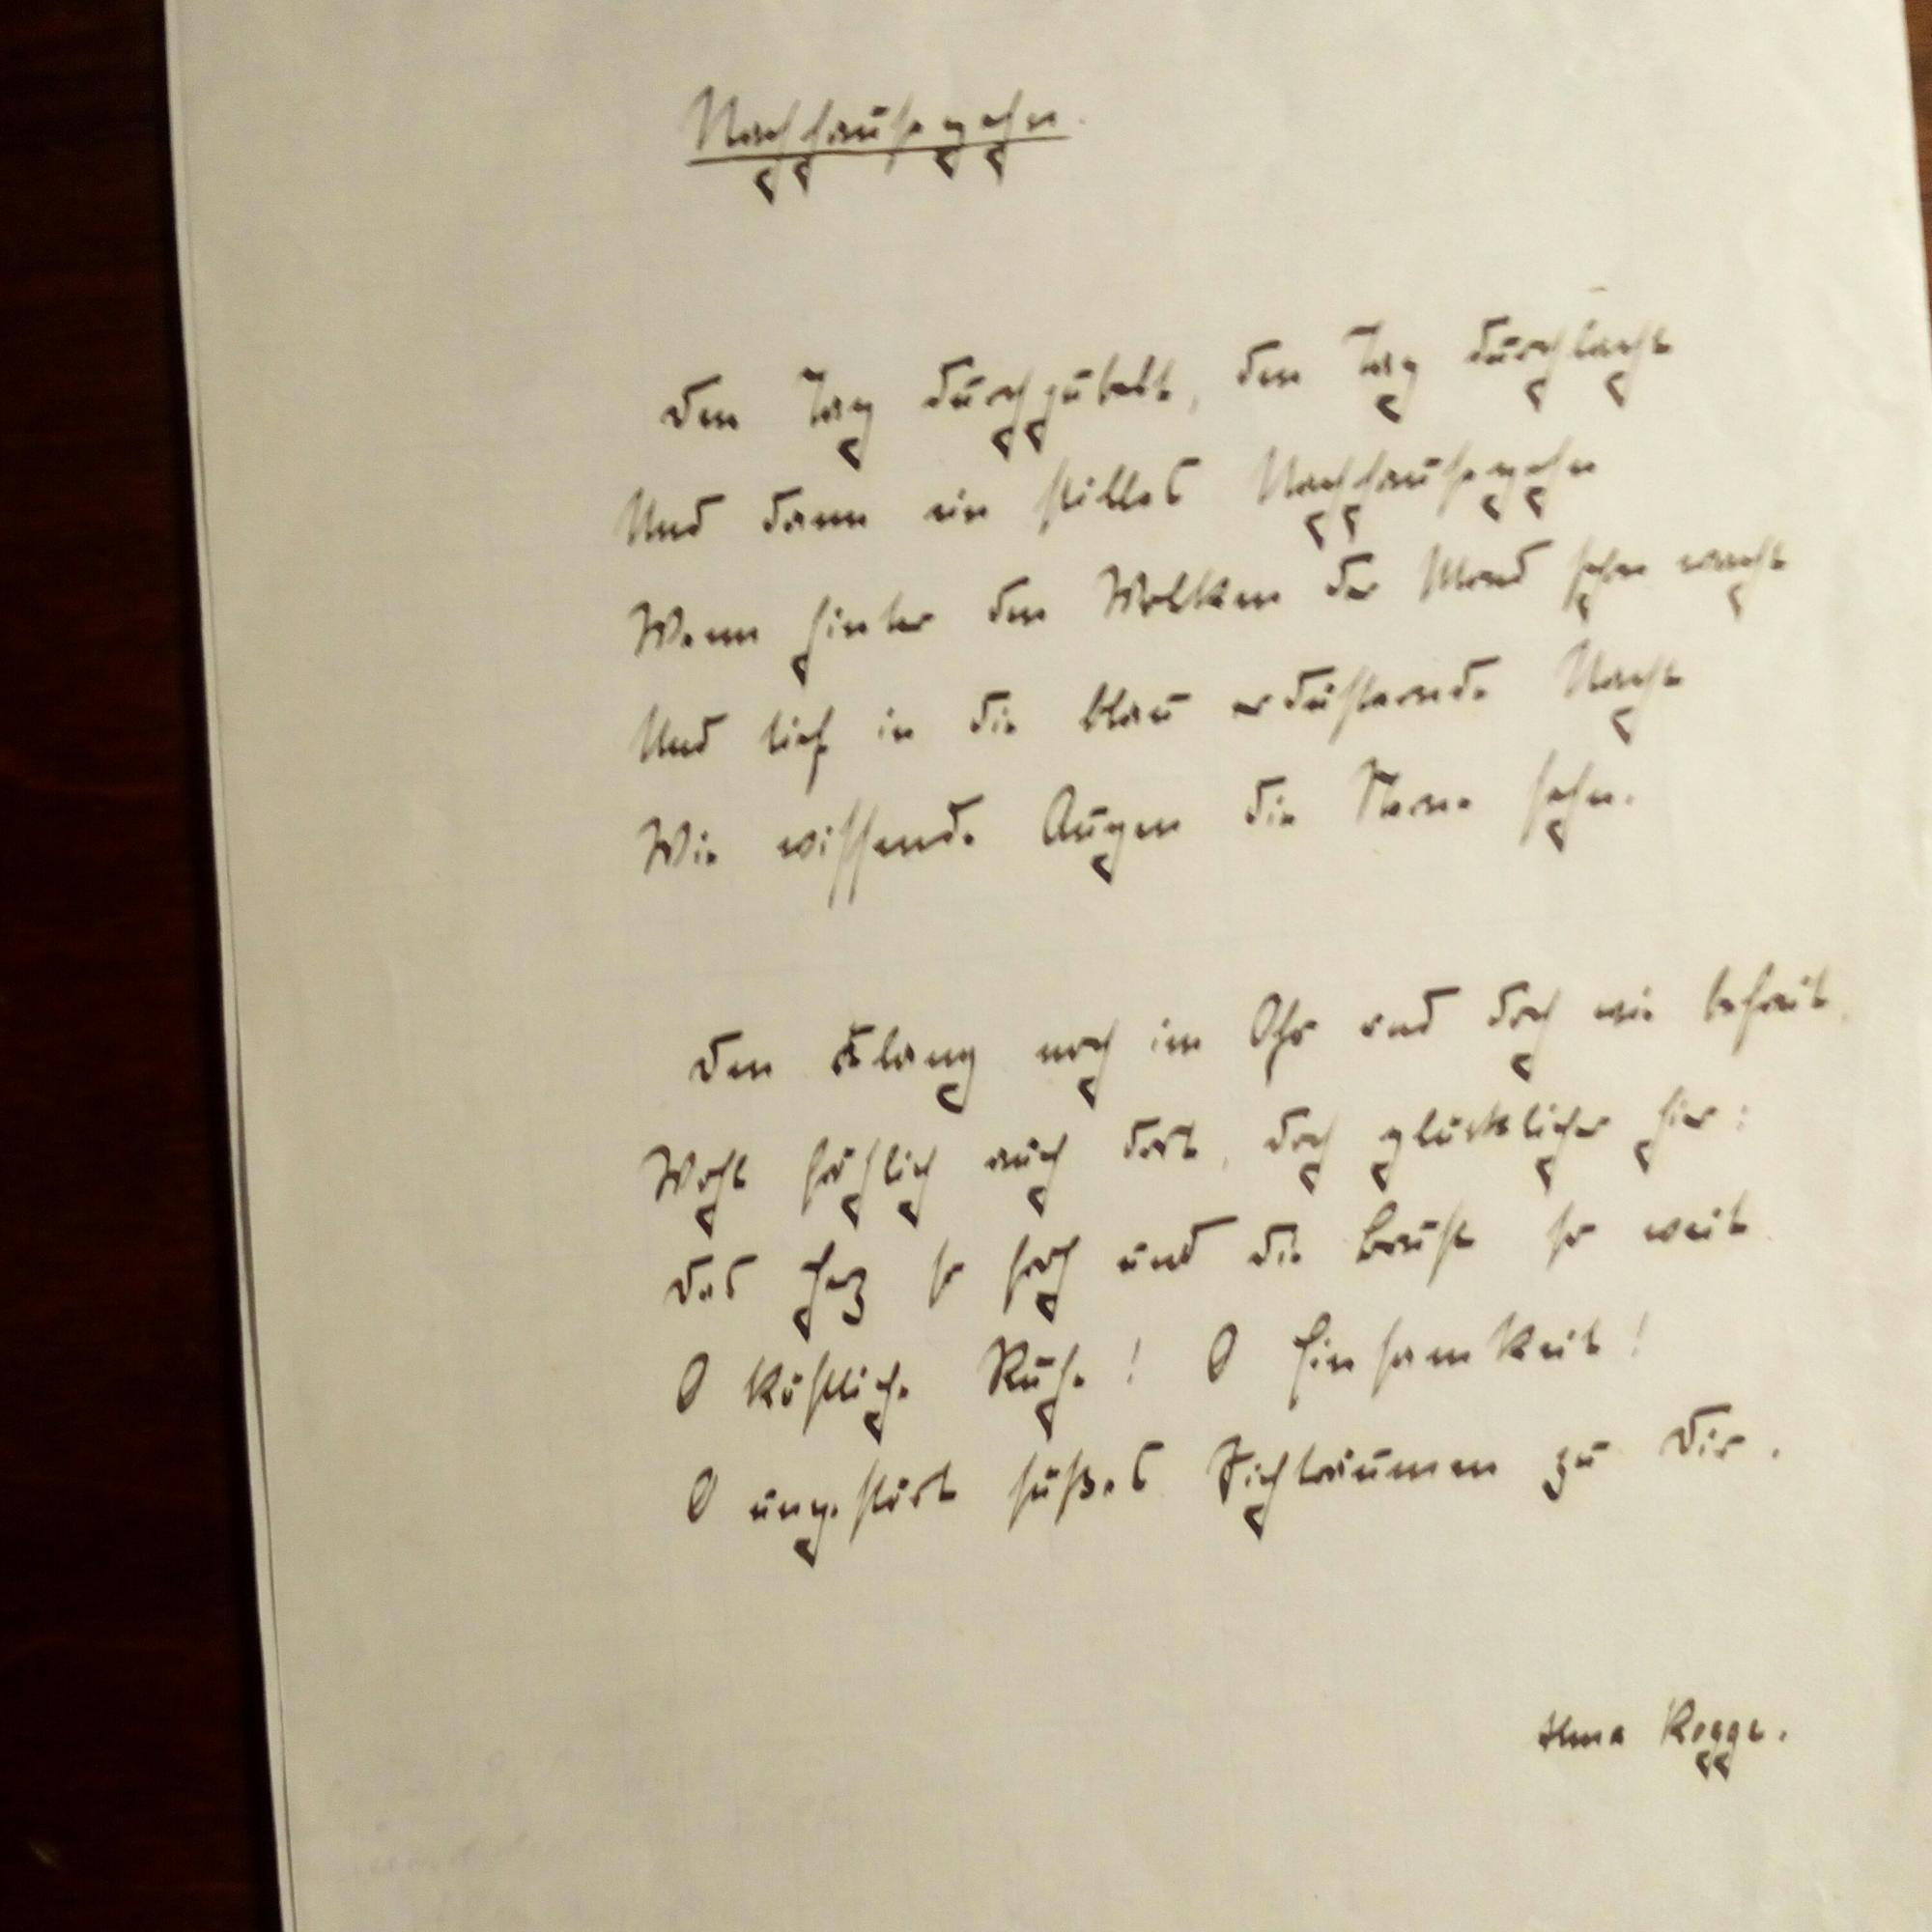 Nachhausegehn.
Den Tag durchjubelt, den Tag durchlacht
Und dann ein stilles Nachhausegehn
Wenn hinter den Wolken der Mond schon wacht
Und tief in die blau erdüsternde Nacht
Wie wissende Augen die Sterne sehn.
Den Klang noch im Ohr und doch wie befreit,
Wohl fröhlich auch dort, doch glücklicher hier:
Das Herz so hoch und die Brust so weit
O köstliche Ruhe! O Einsamkeit!
O ungestört süßes Sichträumen zu Dir.
Alma Rogge.